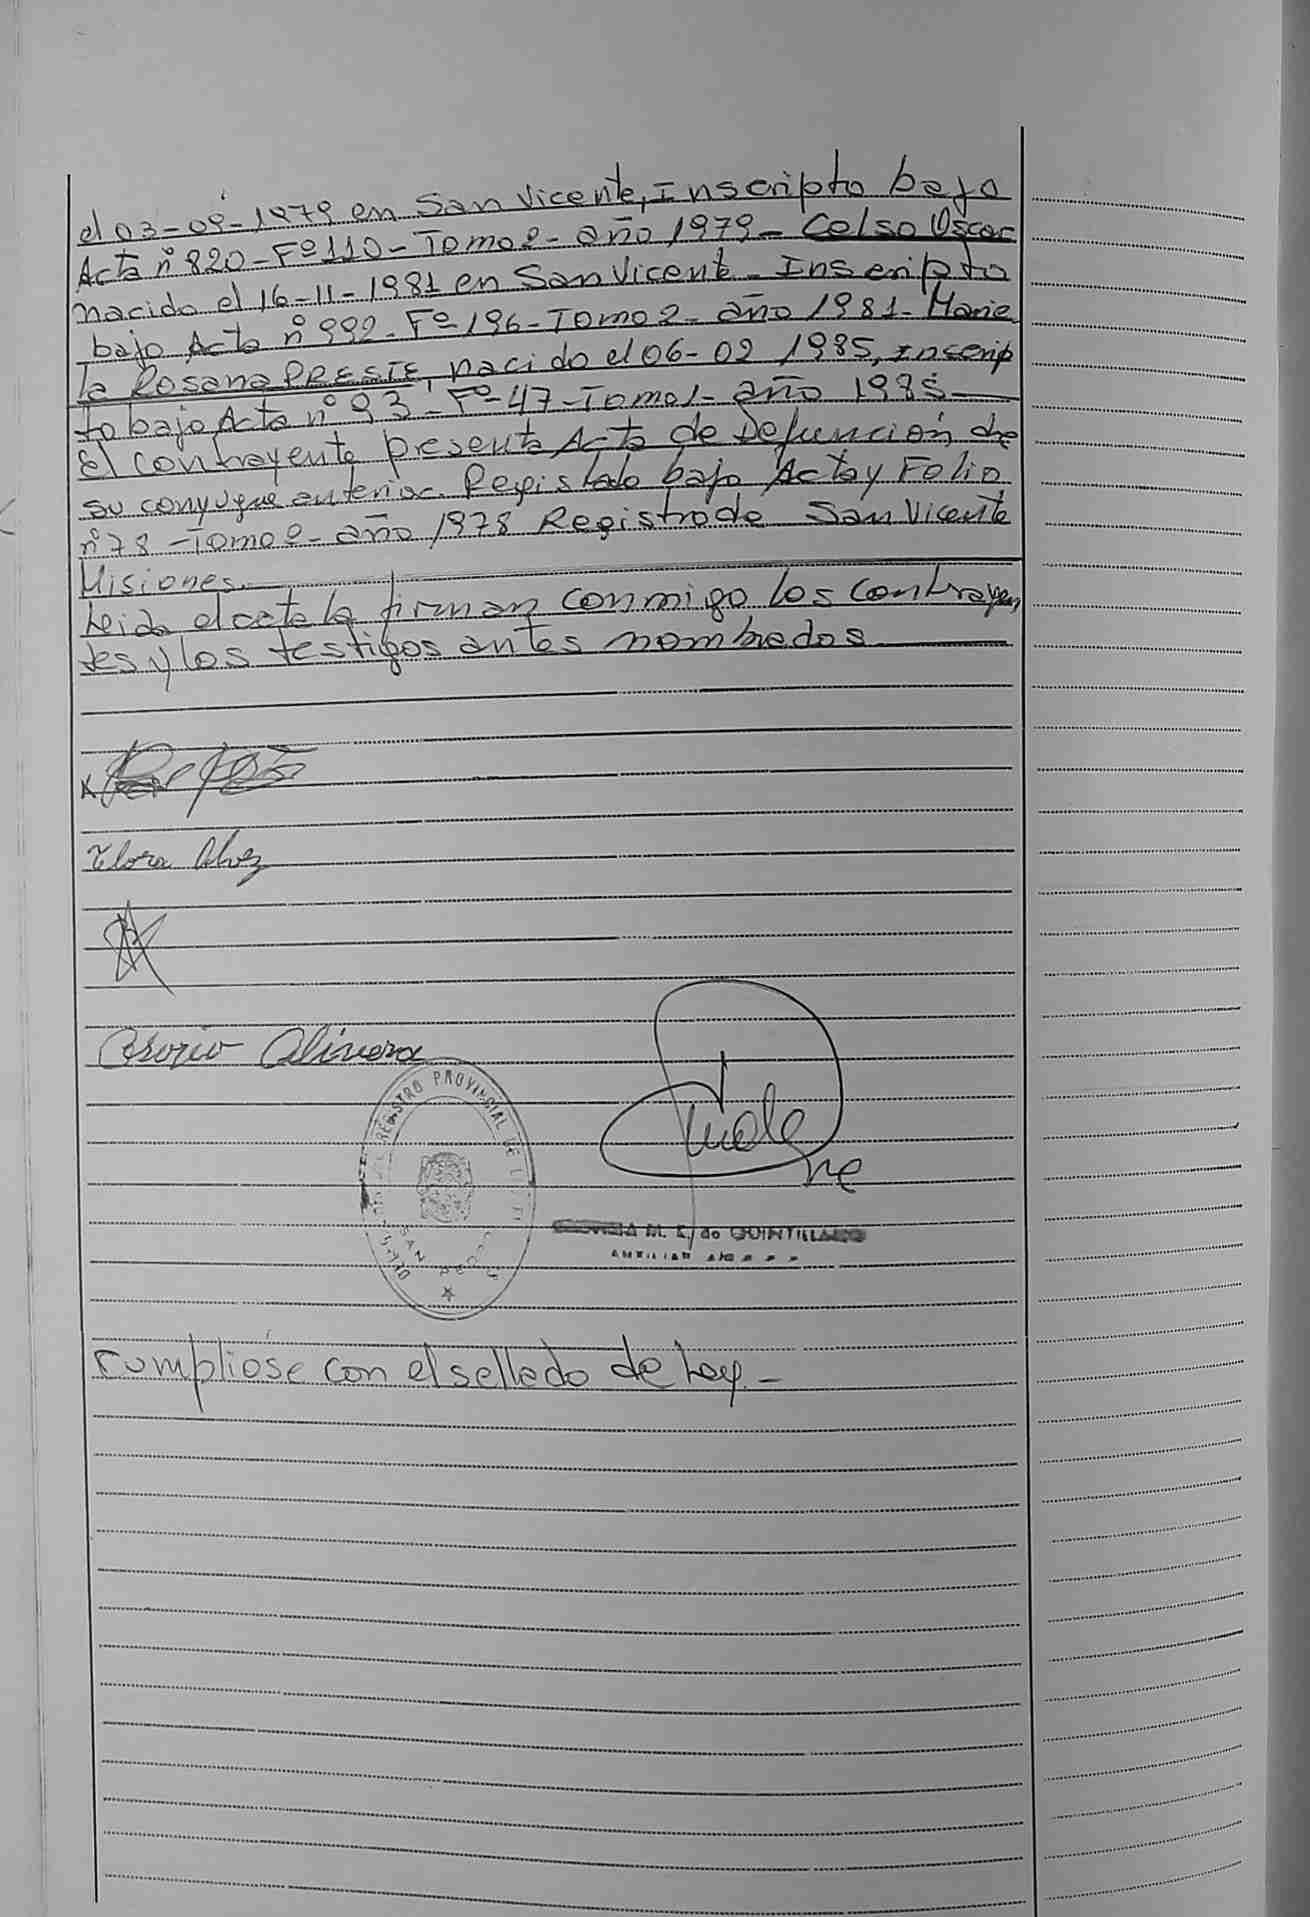 el 03-09-1979 en San Vicente, Inscripto bajo
Acta nº 820-Fº110-Tomo2-año 1979-Celso Oscar
nacido el 16-11-1981 en San Vicente-Inscripto
bajo Acta nº992-Fº196-Tomo2-año 1981-Marie
la Rosana PRESTE, nacido el 06-02 1985, Inscrip
to bajo Acta nº93-Fº-47-Tomo1-año 1985-
El contrayente presenta Acta de Defunción de
su conyugue anterior. Registrado bajo Acta y Folio
nº78-Tomo2-año 1978 Registro de San Vicente
Misiones.
Leida el acta la firman conmigo los contrayen
tes y los testigos antes nombrados
Flora Alvez
Osorio Olivera
REGISTRO PROVINCIAL DE L
SAN
M. E. de QUINTILLANO
AUXILIAR
Cumpliose con el sellado de ley.-